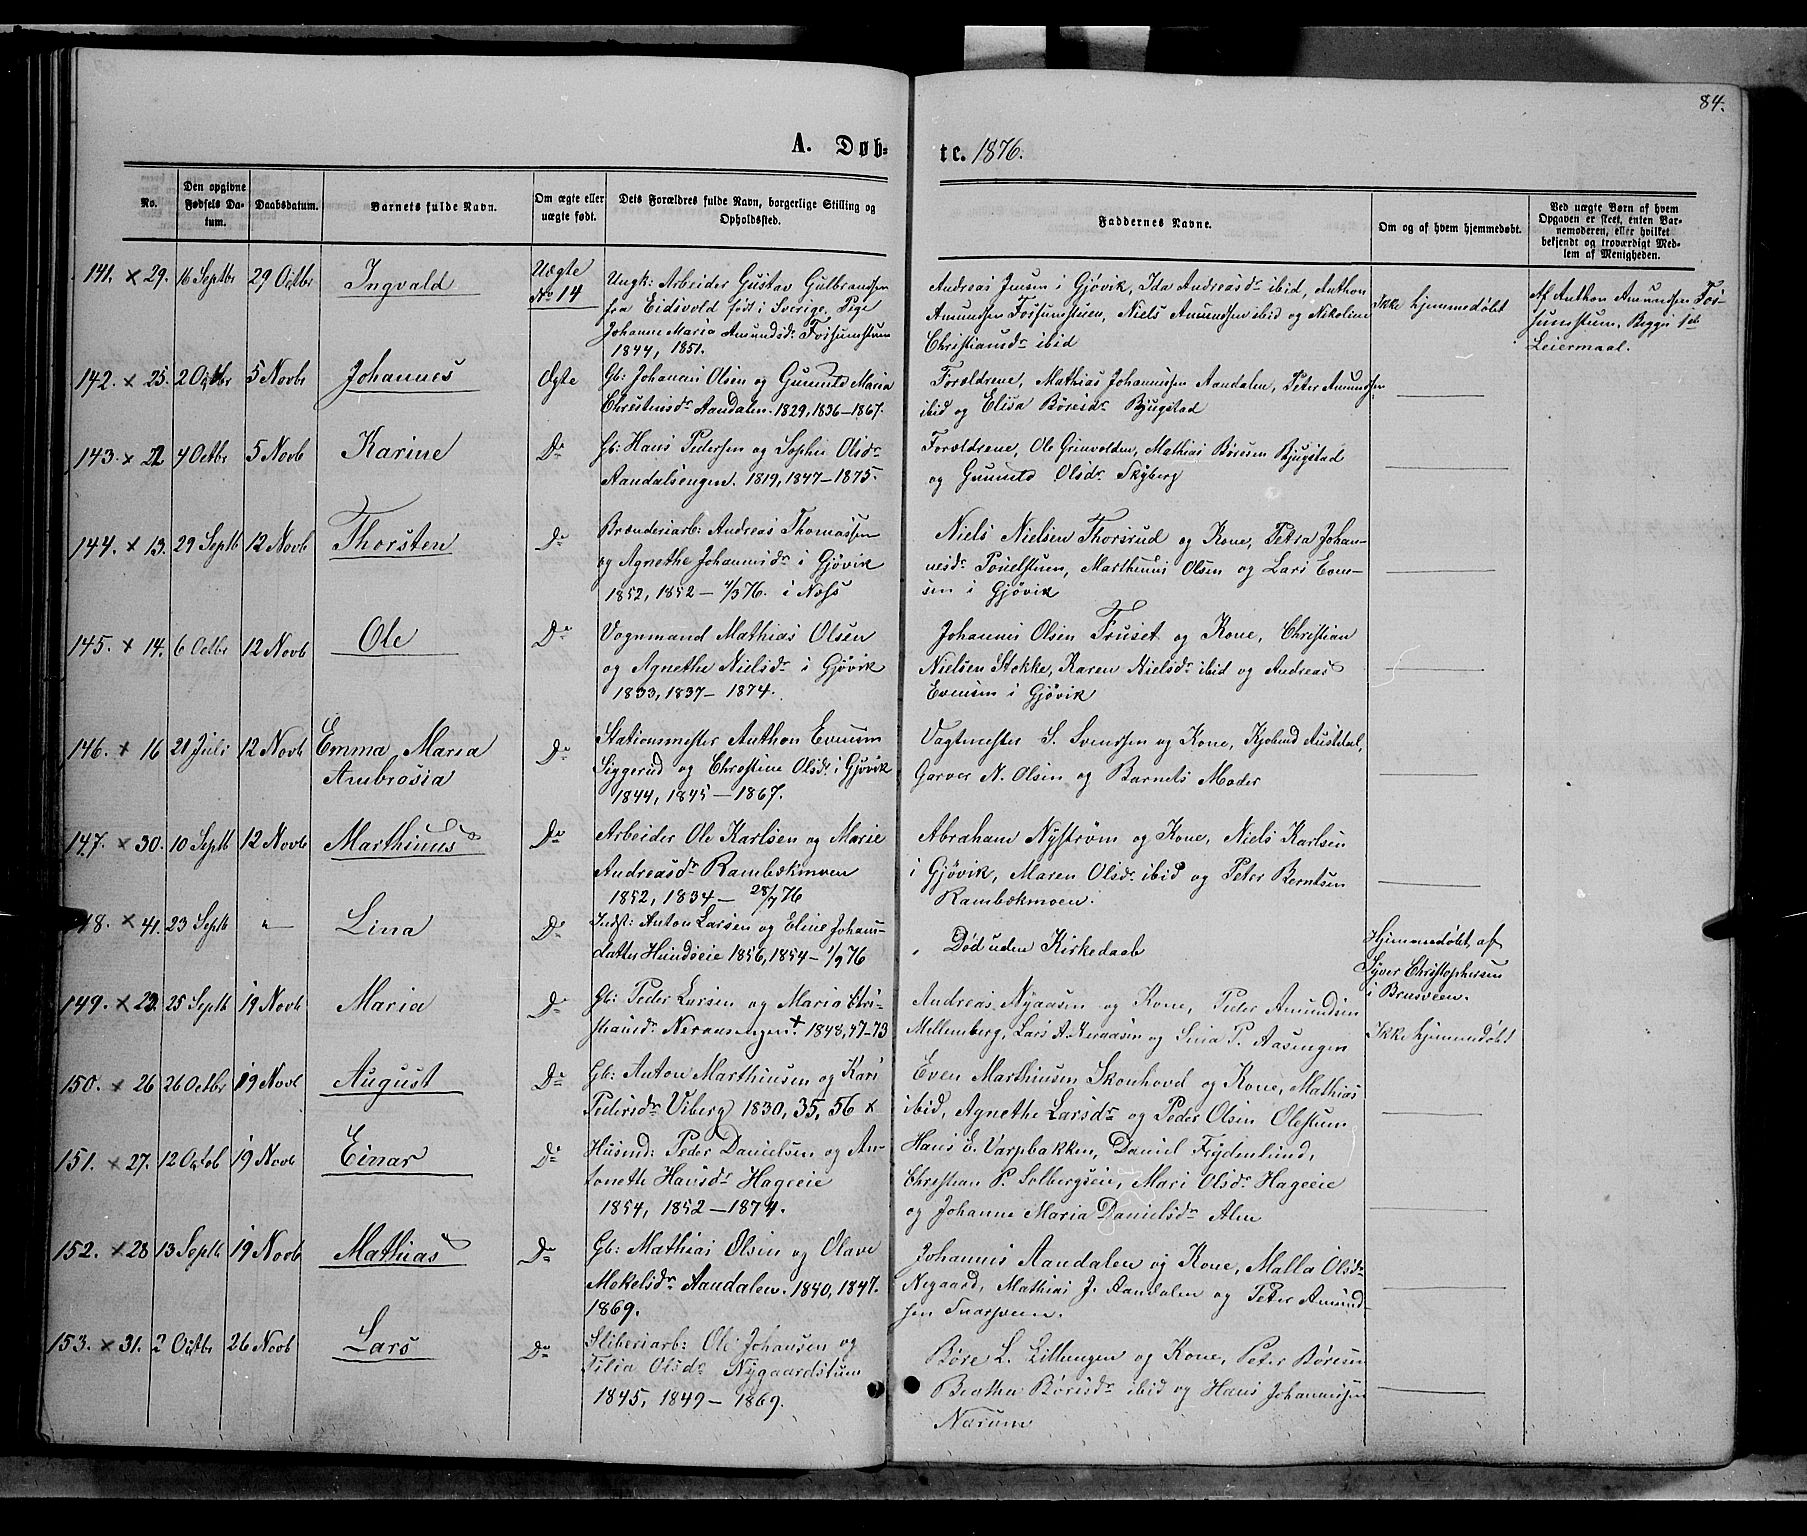 84.
A. Døb=
te. 1876.
No.
Den opgivne Fødsels Da-tum.
Daabsdatum.
Barnets fulde Navn.
Om ægte eller uægte født.
Dets Forældres fulde Navn, borgerlige Stilling og Opholdssted.
Faddernes Navne.
Om og af hvem hjemmedøbt.
Ved uægte Børn af hvem Opgaven er skeet, enten Bar-nemoderen, eller hvilket bekjendt og troværdigt Med-lem af Menigheden.
141. × 29. 16 Septbr 29 Octbr Ingvald Uægte No 14
Ungk: Arbeider Gustav Gulbrandsen
fra Eidsvold født i Sverige. Pige
Johanne Maria Amundsdr Fossumstuen
1844, 1851.
Andreas Jensen i Gjøvik, Ida Andreasdr ibid, Anthon
Amundsen Fossumstuen, Niels Amundsen ibid og Nikoline
Christiansdr ibid
Ikke hjemmedøbt
Af Anthon Amundsen Fos-
sumstuen. Begges 1ste
Leiermaal.
142. × 25. 2 Octbr 5 Novbr Johannes Ægte
Gb: Johannes Olsen og Gunnild Maria
Christensdr Aandalen. 1829, 1836–1867.
Forældrene, Mathias Johannessen Aandalen, Peter Amundsen
ibid og Elisa Børesdr Bjugstad
143. × 22 4 Octbr 5 Novb Karine Do
Gb: Hans Pedersen og Sophie Olsdr
Aandalsengen. 1819, 1847–1875.
Forældrene, Ole Grinvolden, Mathias Børesen Bjugstad
og Gunnild Olsdr Skyberg
144. × 13. 29 Septb 12 Novb Thorsten Do
Brænderiarb: Andreas Thomassen
og Agnethe Johannesdr i Gjøvik
1852, 1852 – 4/3 76. i Næss
Niels Nielsen Thorsrud og Kone, Petra Johan-
nesdr Poulstuen, Marthinus Olsen og Lars Even-
sen i Gjøvik
145. × 14. 6 Octbr 12 Novb Ole Do
Vognmand Mathias Olsen
og Agnethe Nielsdr i Gjøvik
1833, 1837 – 1874.
Johannes Olsen Fruset og Kone, Christian
Nielsen Stokke, Karen Nielsdr ibid og Andreas
Evensen i Gjøvik
146. × 16 21 Juli 12 Novb Emma Maria Ambrosia Do
Stationsmester Anthon Evensen
Siggerud og Christine Olsdr i Gjøvik
1844, 1845 – 1867.
Vagtmester S. Svendsen og Kone, Kjøbmd Austdal,
Garver N. Olsen og Barnets Moder
147. × 30. 10 Septb 12 Novb Marthinus Do
Arbeider Ole Karlsen og Marie
Andreasdr Rambækmoen
1852, 1834 – 28/7 76
Abraham Nyström og Kone, Niels Karlsen
i Gjøvik, Maren Olsdr ibid og Peter Berntsen
Rambækmoen.
148. × 41. 23 Septb „ Lina Do
Indst: Anton Larsen og Eline Johans-
datter Hundseie 1856, 1854 – 1/9 76
Død uden Kirkedaab
Hjemmedøbt af
Syver Christophersen
i Brusveen.
149. × 22. 25 Septb 19 Novb Maria Do
Gb: Peder Larsen og Maria Chri-
stiansdr Neraasengen + 1848, 47–73
Andreas Nyaasen og Kone, Peder Amundsen
Mellemberg, Lars A. Neraasen og Lina P. Aasengen
Ikke hjemmedøbt
150. × 26 26 Octbr 19 Novb August Do
Gb: Anton Marthinsen og Kari
Pedersdr Viberg 1830, 35, 56 ×
Even Marthinsen Skonhovd og Kone, Mathias
ibid, Agnethe Larsdr og Peder Olsen Olestuen
151. × 27. 12 Octob 19 Novb Einar Do
Husmd: Peder Danielsen og An-
tonette Hansdr Hageeie
1854, 1852 – 1874.
Hans E. Varpbakken, Daniel Frydenlund,
Christian P. Solbergseie, Mari Olsdr Hageeie
og Johanne Maria Danielsdr Alm
152. × 28 13 Septb 19 Novb Mathias Do
Gb: Mathias Olsen og Olave
Mokelsdr Aandalen. 1840, 1847.
1869.
Johannes Aandalen og Kone, Malla Olsdr
Nygaard, Mathias J. Aandalen og Peter Amund-
sen Snarsveen.
153. × 31. 2 Octbr 26 Novb Lars Do
Sliberiarb: Ole Johansen og
Tilia Olsdr Nygaardstuen
1845, 1849 – 1869.
Børe L. Lillengen og Kone, Peter Børesen
Beatha Børesdr ibid og Hans Johannessen
Nærum